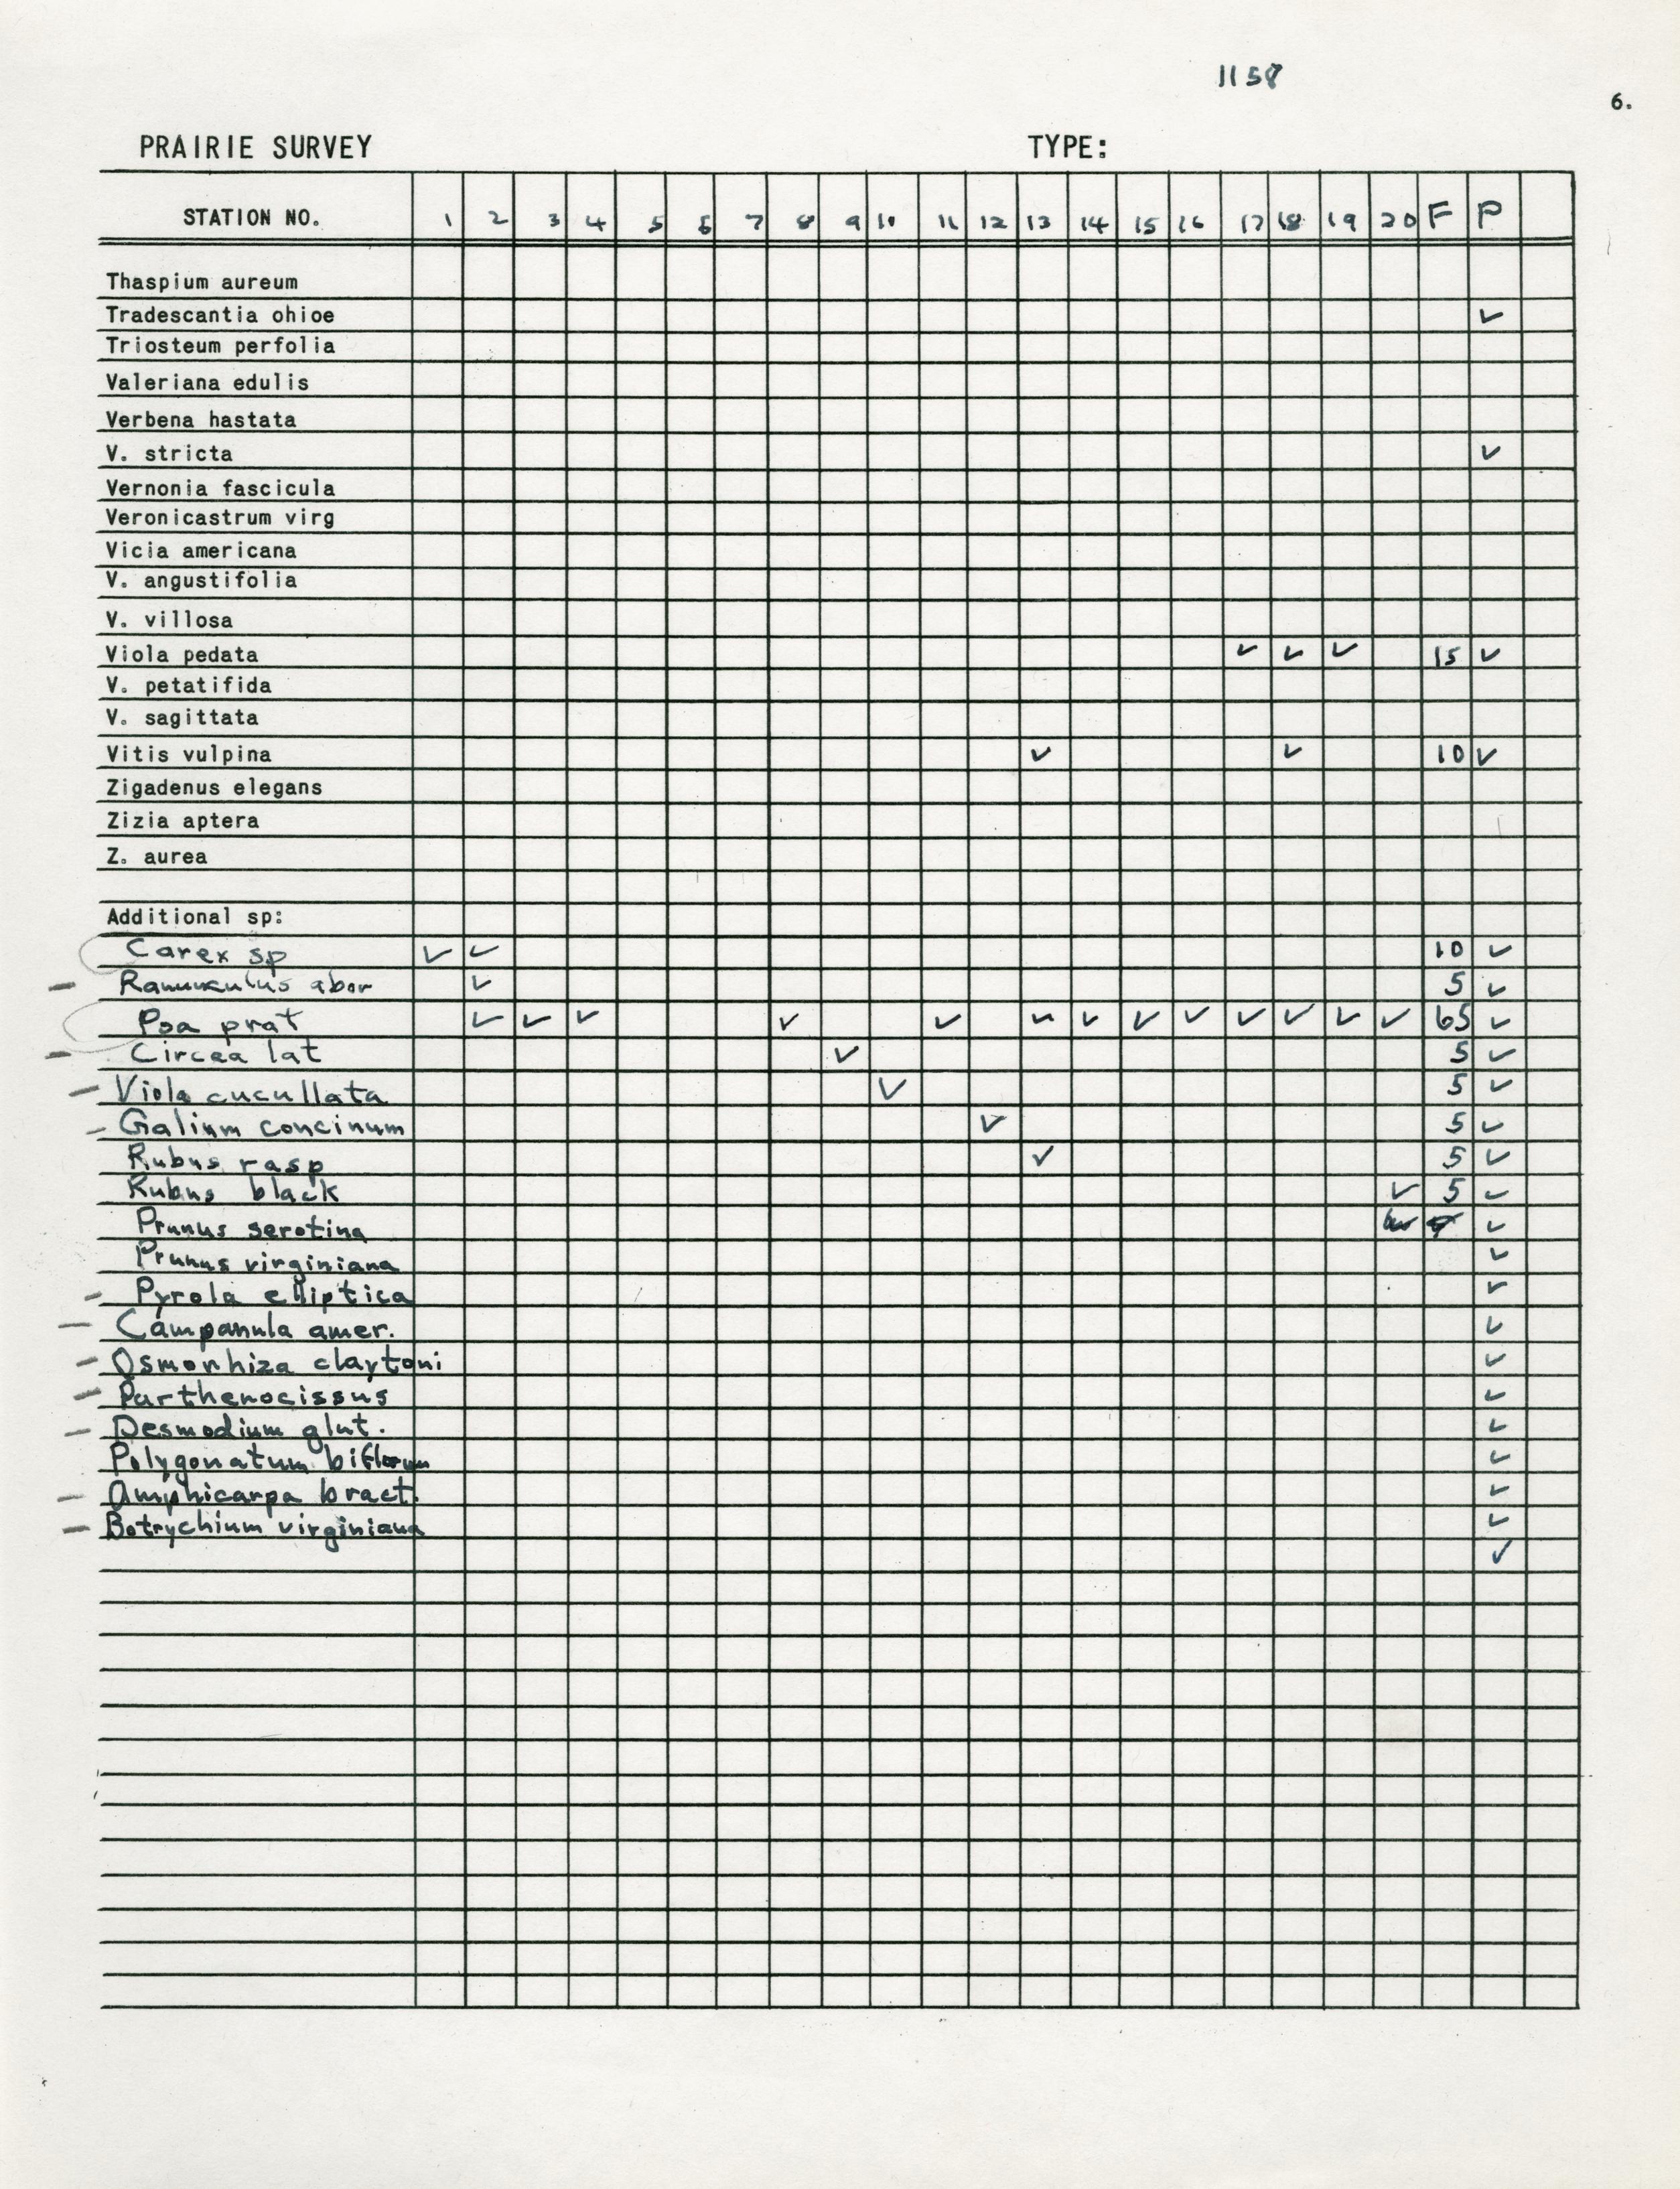 1158
6.
PRAIRIE SURVEY TYPE:
STATION NO. 1 2 3 4 5 6 7 8 9 10 11 12 13 14 15 16 17 18 19 20 F P
Thaspium aureum
Tradescantia ohioe ✓
Triosteum perfolia
Valeriana edulis
Verbena hastata
V. stricta ✓
Vernonia fascicula
Veronicastrum virg
Vicia americana
V. angustifolia
V. villosa
Viola pedata ✓ ✓ ✓ 15 ✓
V. petatifida
V. sagittata
Vitis vulpina ✓ ✓ 10 ✓
Zigadenus elegans
Zizia aptera
Z. aurea
Additional sp:
Carex sp ✓ ✓ 10 ✓
- Ranunculus abor ✓ 5 ✓
Poa prat ✓ ✓ ✓ ✓ ✓ ✓ ✓ ✓ ✓ ✓ ✓ ✓ ✓ 65 ✓
- Circea lat ✓ 5 ✓
- Viola cucullata ✓ 5 ✓
- Galium concinum ✓ 5 ✓
Rubus rasp ✓ 5 ✓
Rubus black ✓ 5 ✓
Prunus serotina ✓
Prunus virginiana ✓
- Pyrola elliptica ✓
- Campanula amer. ✓
- Osmorhiza claytoni ✓
- Parthenocissus ✓
- Desmodium glut. ✓
Polygonatum biflorum ✓
- Amphicarpa bract. ✓
- Botrychium virginiana ✓
✓